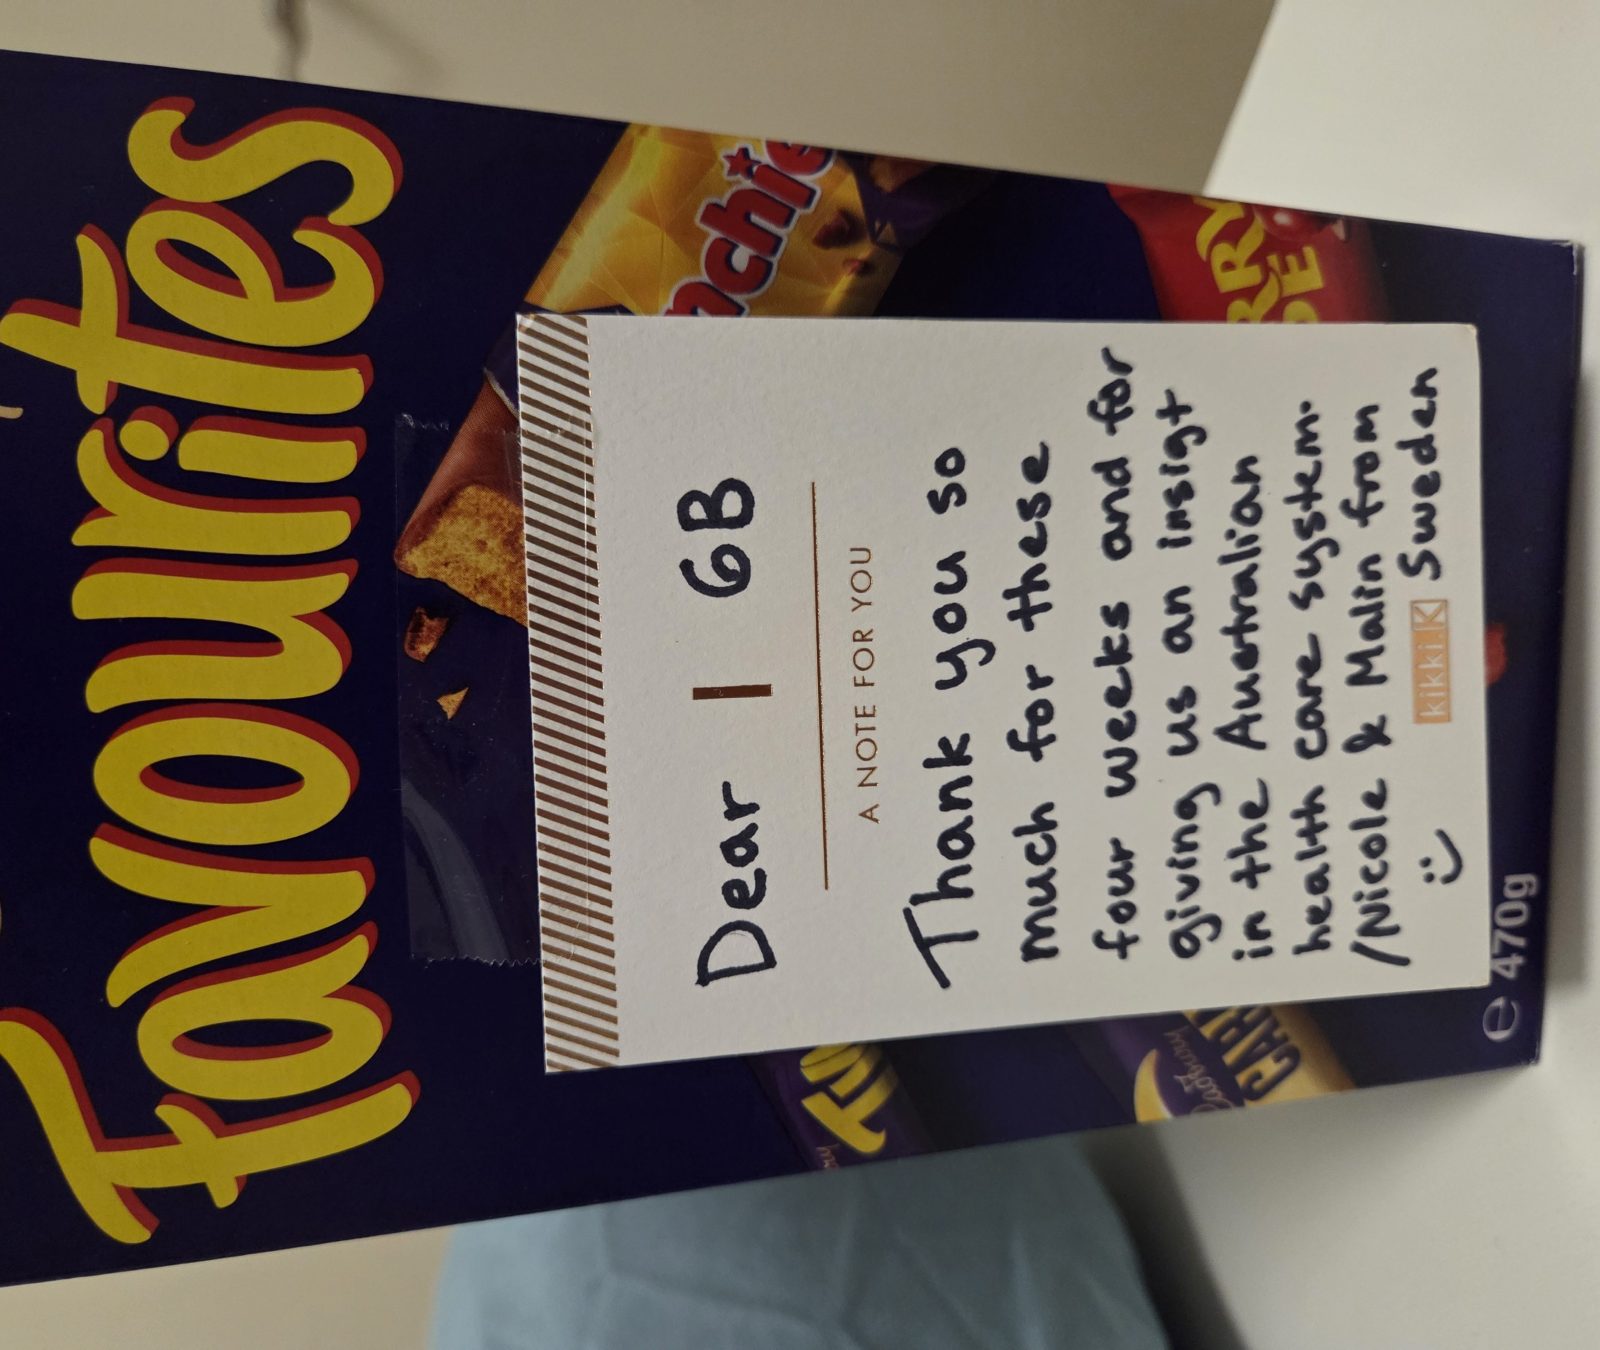 Favourites
nchie
RRY
PE
Dear | 6B
A NOTE FOR YOU
Thank you so
much for these
four weeks and for
giving us an insigt
in the Australian
health care system.
/Nicole & Malin from
:) kikki.K Sweden
Cadbury
e 470g